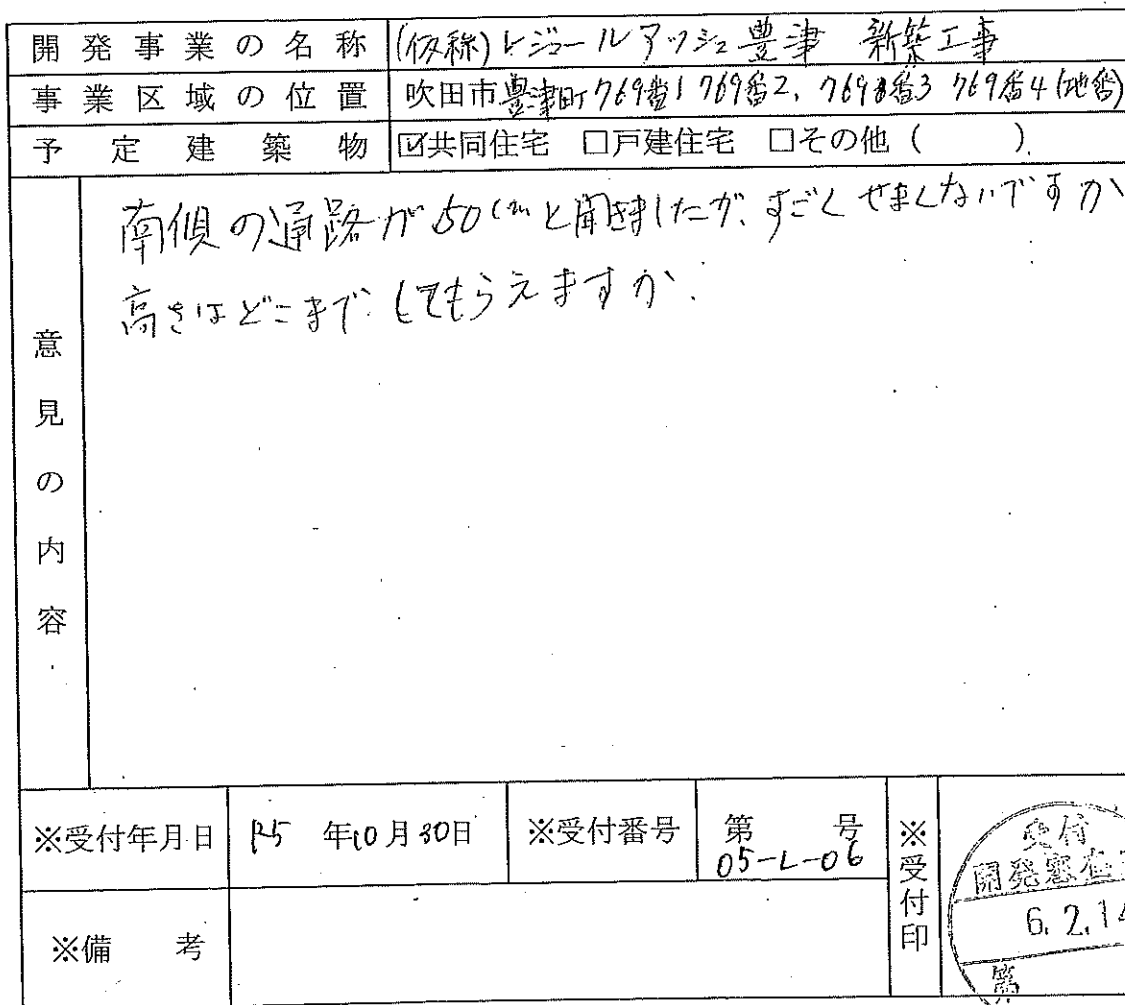 開発事業の名称 (仮称)レジュールアッシュ豊津 新築工事
事業区域の位置 吹田市豊津町769番1 769番2、769番3 769番4(地番)
予定建築物 ☑共同住宅 □戸建住宅 □その他( )
意見の内容
南側の通路が50cmと聞きましたが、すごくせまくないですか
高さはどこまでしてもらえますか.
※受付年月日 R5年10月30日 ※受付番号 第 号
05-L-06
※受付印
受付
開発審査
6.2.14
第
※備考